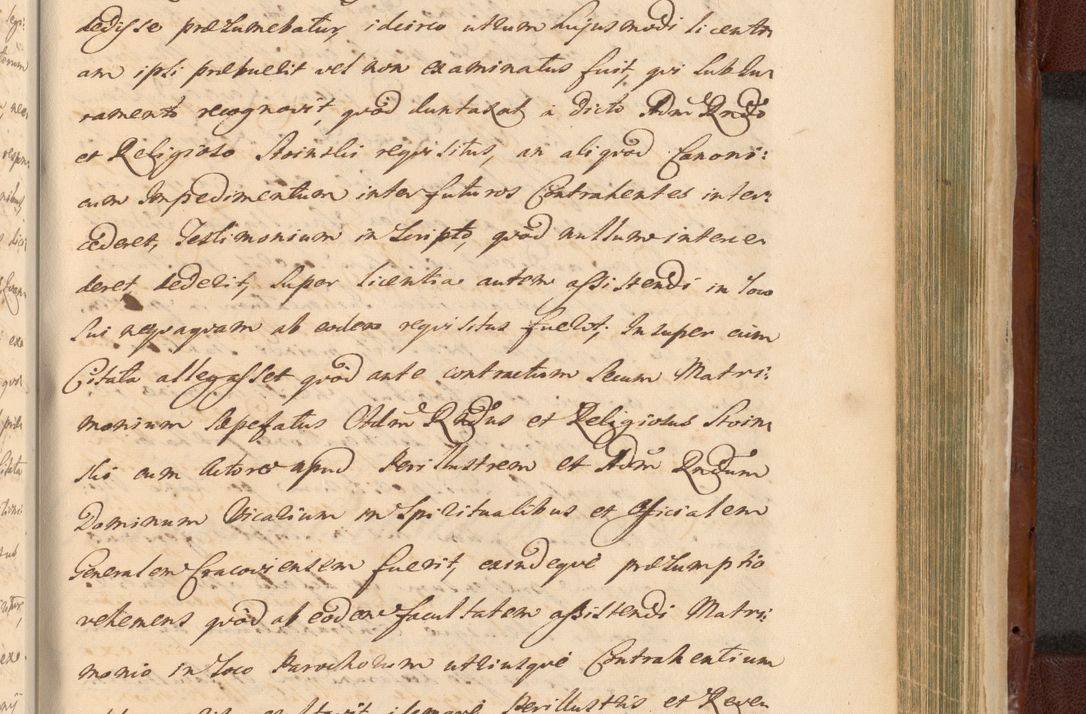 dedisse præsumebatur, idcirco utrum hujusmodi licenti
am ipsi præbuerit vel non examinatus fuit, qvi sub Ju
ramento recognovit, qvod duntaxat a dicto Adm Rndo
et Religioso Stoinski reqvisitus, an aliqvod Canoni:
cum Impedimentum inter futuros Contrahentes inter:
cederet, Testimonium in Scripto, qvod nullum interce
deret, dederit, super licentia autem assistendi in loco
sui neqvaqvam ab eodem reqvisitus fuerit. Insuper cum
Citata allegasset qvod ante contractum secum Matri:
monium sæpefatus Adm Rndus et Religiosus Stoin
ski cum Actore apud Perillustrem et Adm Rndum
Dominum Vicarium in Spiritualibus et Officialem
Generalem Cracoviensem fuerit, exindeqve præsumptio
vehemens qvod ab eodem facultatem assistendi Matri:
monio in loco Parochorum utriusqve Contrahentium
Perillustris et Reveren